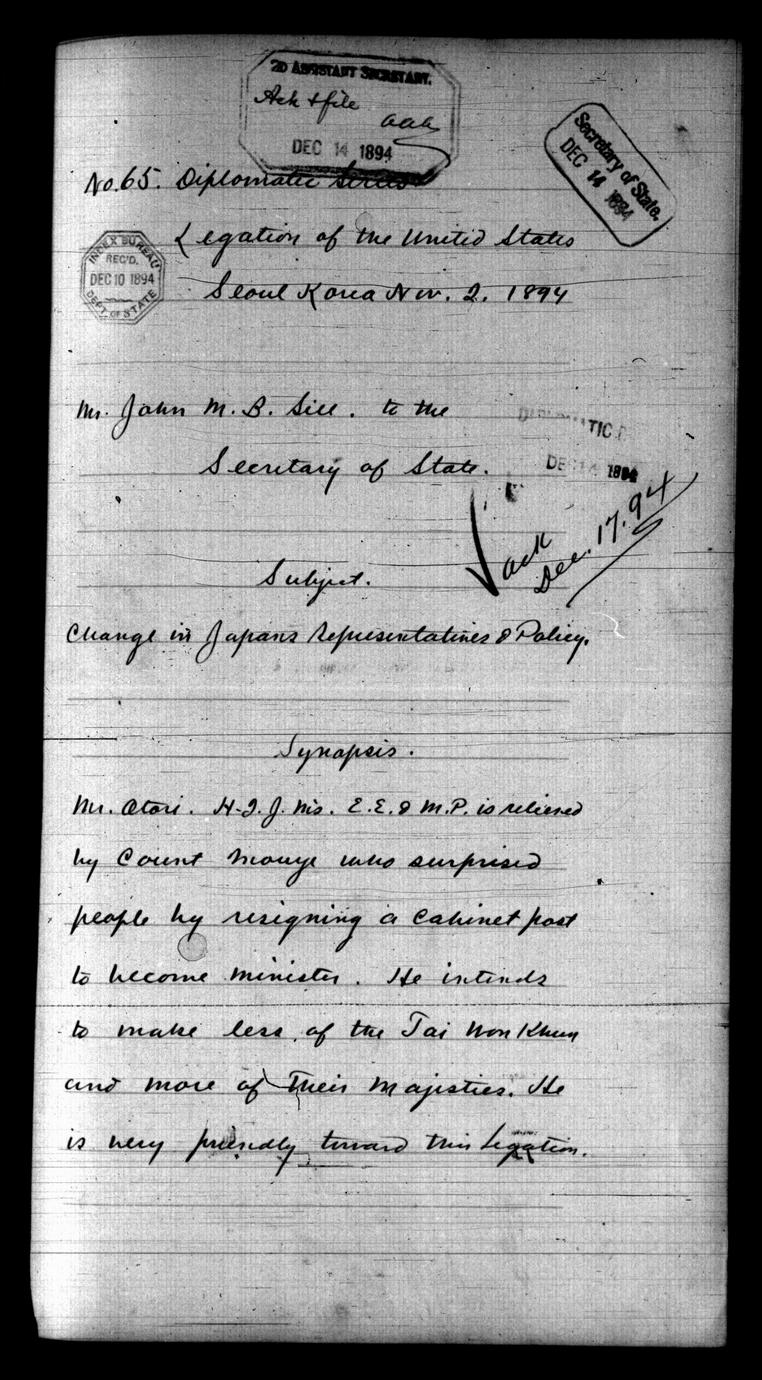 2D ASSISTANT SECRETARY.
Ack & file
aaa
DEC 14 1894
Secretary of State.
DEC 14 1894
No. 65. Diplomatic Series
Legation of the United States
INDEX BUREAU
REC'D.
DEC 10 1894
DEPT. OF STATE
Seoul Korea Nov. 2. 1894
Mr. John M. B. Sill. to the
Secretary of State.
DIPLOMATIC
DEC 14 1894
ack
Dec. 17. 94
Subject.
Change in Japans Representatives & Policy.
Synopsis.
Mr. Otori. H.I.J. Ms. E.E. & M.P. is relieved
by Count Inouye who surprised
people by resigning a Cabinet post
to become minister. He intends
to make less of the Tai Won Khun
and more of Their Majesties. He
is very friendly toward this Legation.